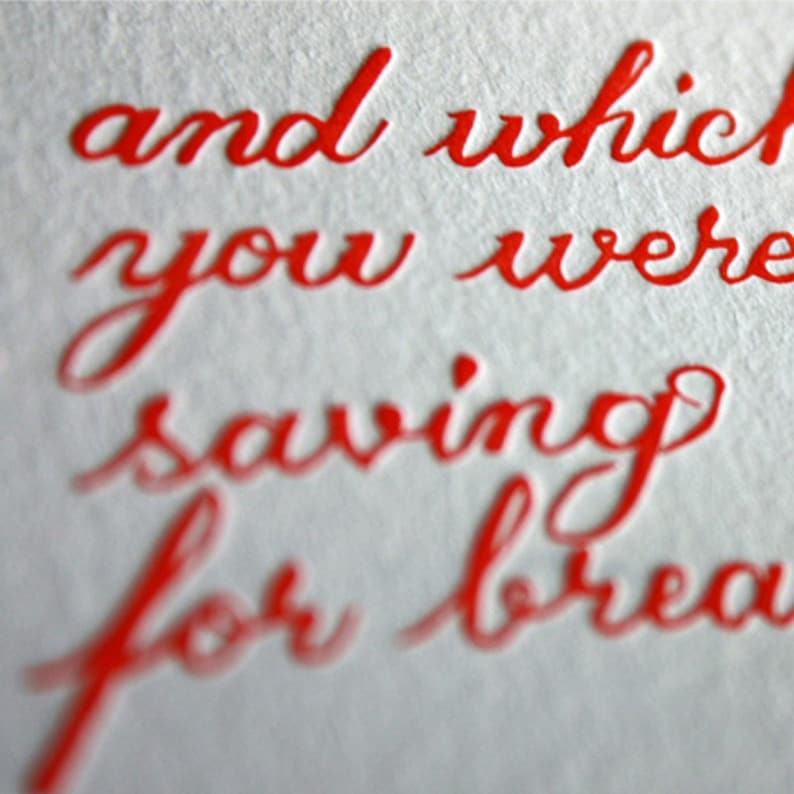 and which
you were
saving
for brea